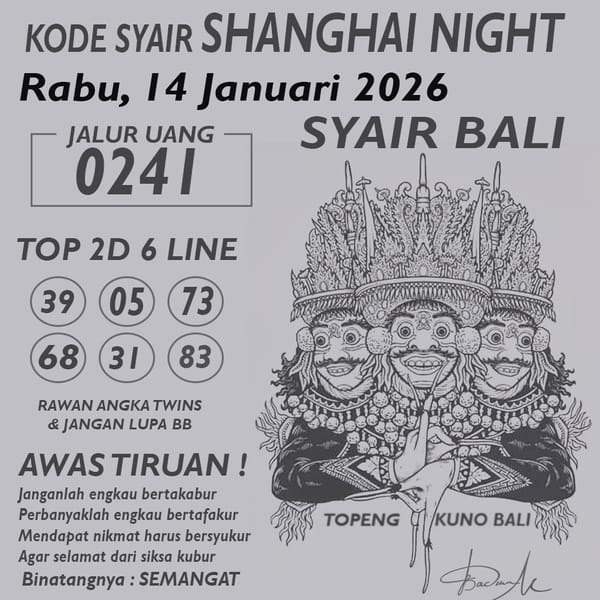 KODE SYAIR SHANGHAI NIGHT
Rabu, 14 Januari 2026
SYAIR BALI
JALUR UANG
0241
TOP 2D 6 LINE
39 05 73
68 31 83
RAWAN ANGKA TWINS
& JANGAN LUPA BB
AWAS TIRUAN !
Janganlah engkau bertakabur
Perbanyaklah engkau bertafakur
Mendapat nikmat harus bersyukur
Agar selamat dari siksa kubur
Binatangnya : SEMANGAT
TOPENG KUNO BALI